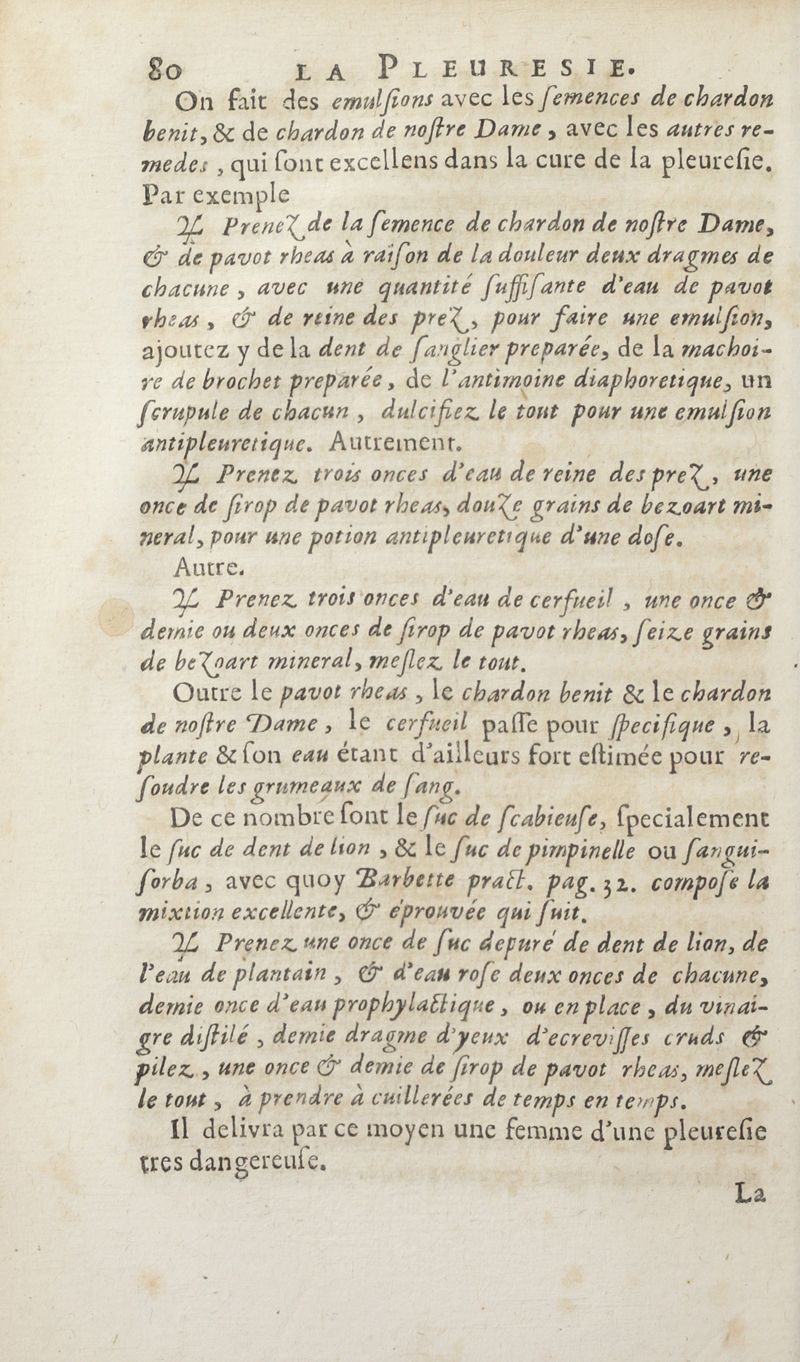 80 LA PLEURESIE.
On fait des emulſions avec les ſemences de chardon
benit, & de chardon de noſtre Dame, avec les autres re-
medes, qui ſont excellens dans la cure de la pleureſie.
Par exemple
♃ Prenez de la ſemence de chardon de noſtre Dame,
& de pavot rheas à raiſon de la douleur deux dragmes de
chacune, avec une quantité ſuffiſante d'eau de pavot
rheas, & de reine des prez, pour faire une emulſion,
ajoutez y de la dent de ſanglier preparée, de la machoi-
re de brochet preparée, de l'antimoine diaphoretique, un
ſcrupule de chacun, dulcifiez le tout pour une emulſion
antipleuretique. Autrement.
♃ Prenez trois onces d'eau de reine des prez, une
once de ſirop de pavot rheas, douze grains de bezoart mi-
neral, pour une potion antipleuretique d'une doſe.
Autre.
♃ Prenez trois onces d'eau de cerfueil, une once &
demie ou deux onces de ſirop de pavot rheas, ſeize grains
de bezoart mineral, meſlez le tout.
Outre le pavot rheas, le chardon benit & le chardon
de noſtre Dame, le cerfueil paſſe pour ſpecifique, la
plante & ſon eau étant d'ailleurs fort eſtimée pour re-
ſoudre les grumeaux de ſang.
De ce nombre ſont le ſuc de ſcabieuſe, ſpecialement
le ſuc de dent de lion, & le ſuc de pimpinelle ou ſangui-
ſorba, avec quoy Barbette pract. pag. 32. compoſe la
mixtion excellente, & éprouvée qui ſuit.
♃ Prenez une once de ſuc depuré de dent de lion, de
l'eau de plantain, & d'eau roſe deux onces de chacune,
demie once d'eau prophylactique, ou en place, du vinai-
gre diſtilé, demie dragme d'yeux d'ecreviſſes cruds &
pilez, une once & demie de ſirop de pavot rheas, meſlez
le tout, à prendre à cuillerées de temps en temps.
Il delivra par ce moyen une femme d'une pleureſie
tres dangereuſe.
La